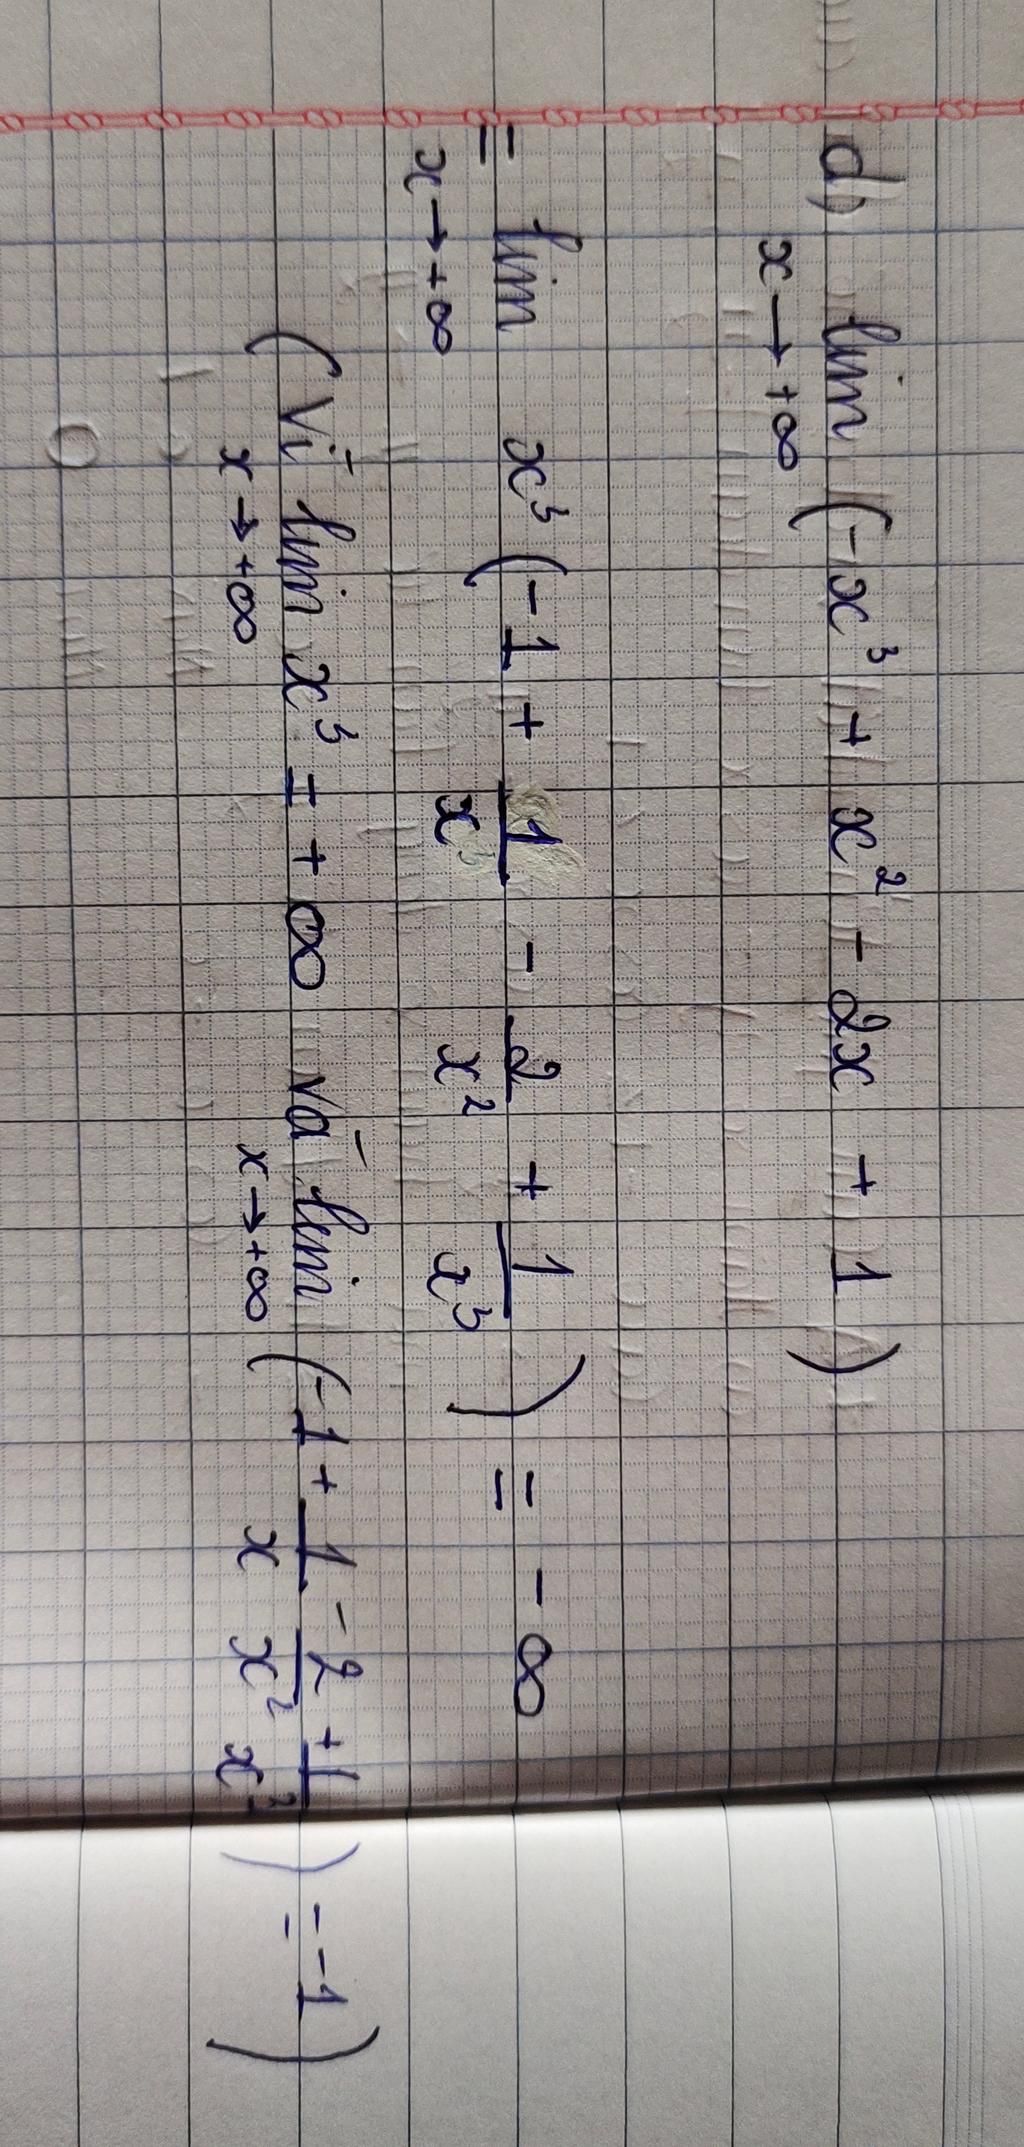 d) lim (-x³ + x² - 2x + 1)
x → +∞
= lim x³ (-1 + 1/x - 2/x² + 1/x³) = -∞
x → +∞
(Vì lim x³ = +∞ và lim (-1 + 1/x - 2/x² + 1/x³) = -1)
x → +∞ x → +∞